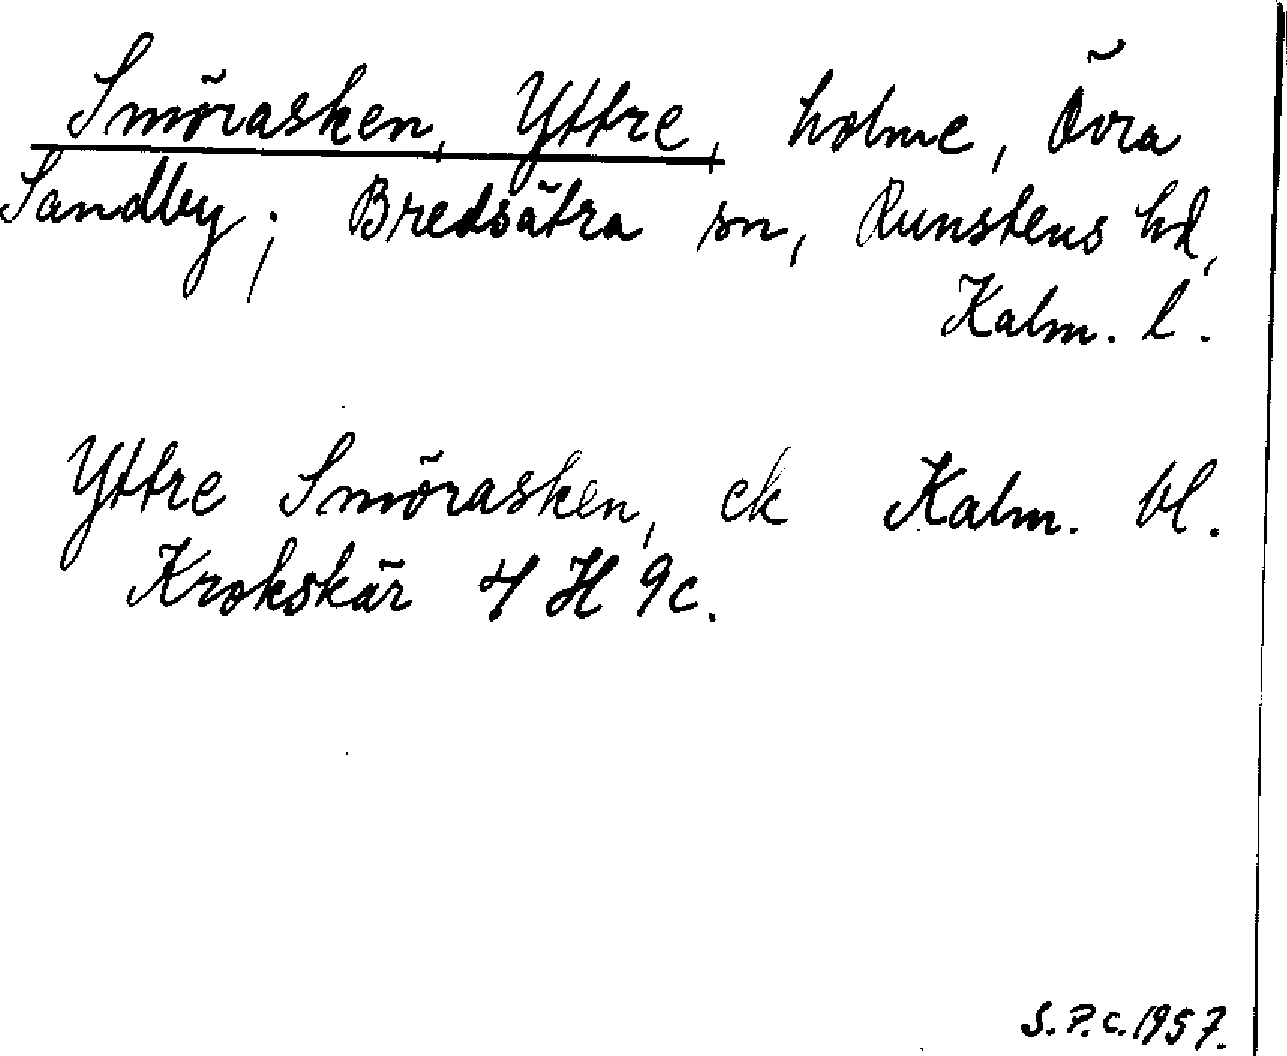 Smörasken, Yttre, holme, Övra
Sandby; Bredsätra sn, Runstens hd,
Kalm. l.
Yttre Smörasken, ek Kalm. bl.
Krokskär 4 H 9c.
S.P.C. 1957.